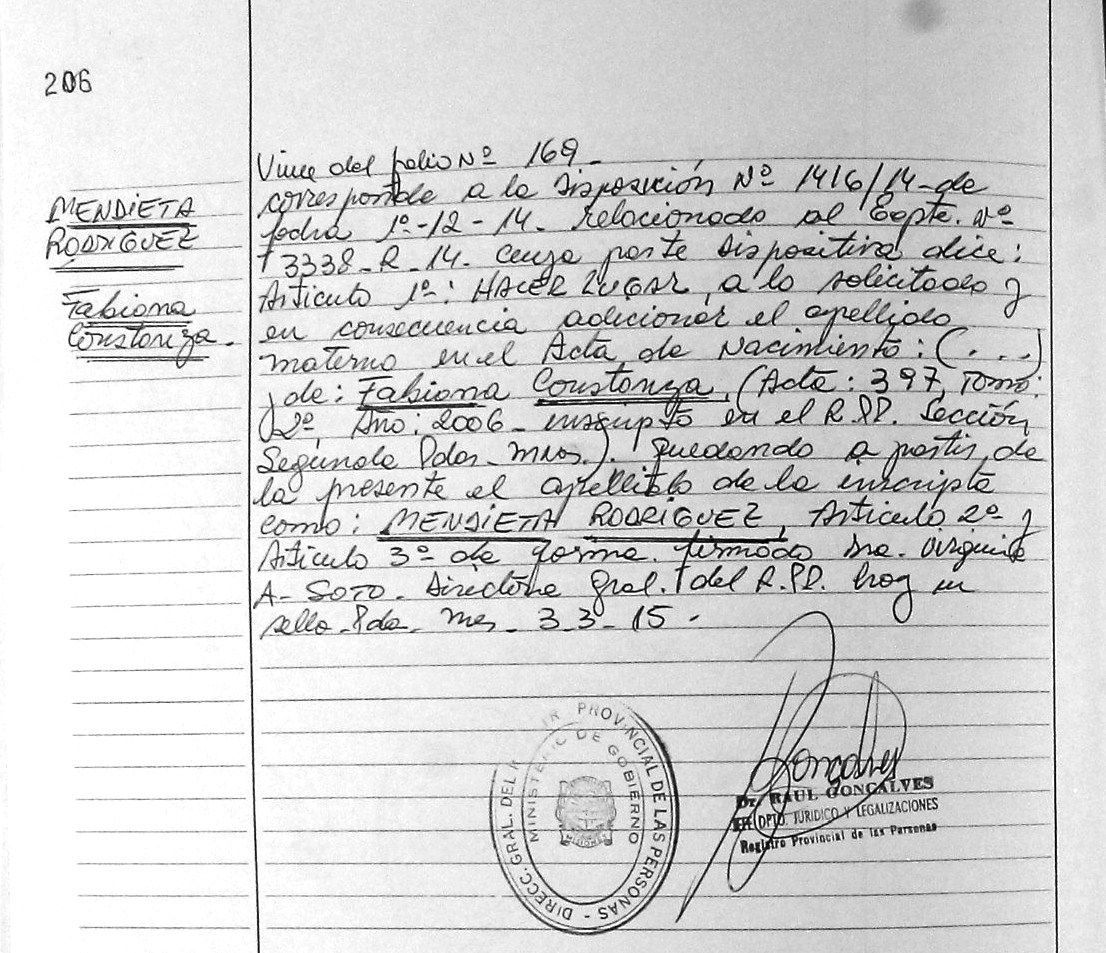 206
MENDIETA
RODRIGUEZ
Fabiana
Constanza.
Viene del folio Nº 169.-
corresponde a la Disposición Nº 1416/14-de
fecha 1º-12-14. relacionado al Expte. Nº
3338-R-14. cuya parte dispositiva dice:
Articulo 1º: HACER LUGAR, a lo solicitado y
en consecuencia adicionar el apellido
materno en el Acta de Nacimiento: (...)
de: Fabiana Constanza, (Acta: 397, Tomo:
2º, Año: 2006- inscripto en el R.PP. Sección
Segunda Pdas-Mnes.). Quedando a partir de
la presente el apellido de la inscripta
como: MENDIETA RODRIGUEZ, Articulo 2º y
Articulo 3º de forma. firmado Dra.
A- SOTO. Directora Gral. del R.PP. hay un
sello. Pdas. Mnes. 3-3-15.-
DIRECC. GRAL. DEL PROVINCIAL DE LAS PERSONAS -
MINISTERIO DE GOBIERNO
MISIONES
Goncalves
Dr. RAUL GONCALVES
DPTO. JURIDICO Y LEGALIZACIONES
Registro Provincial de las Personas